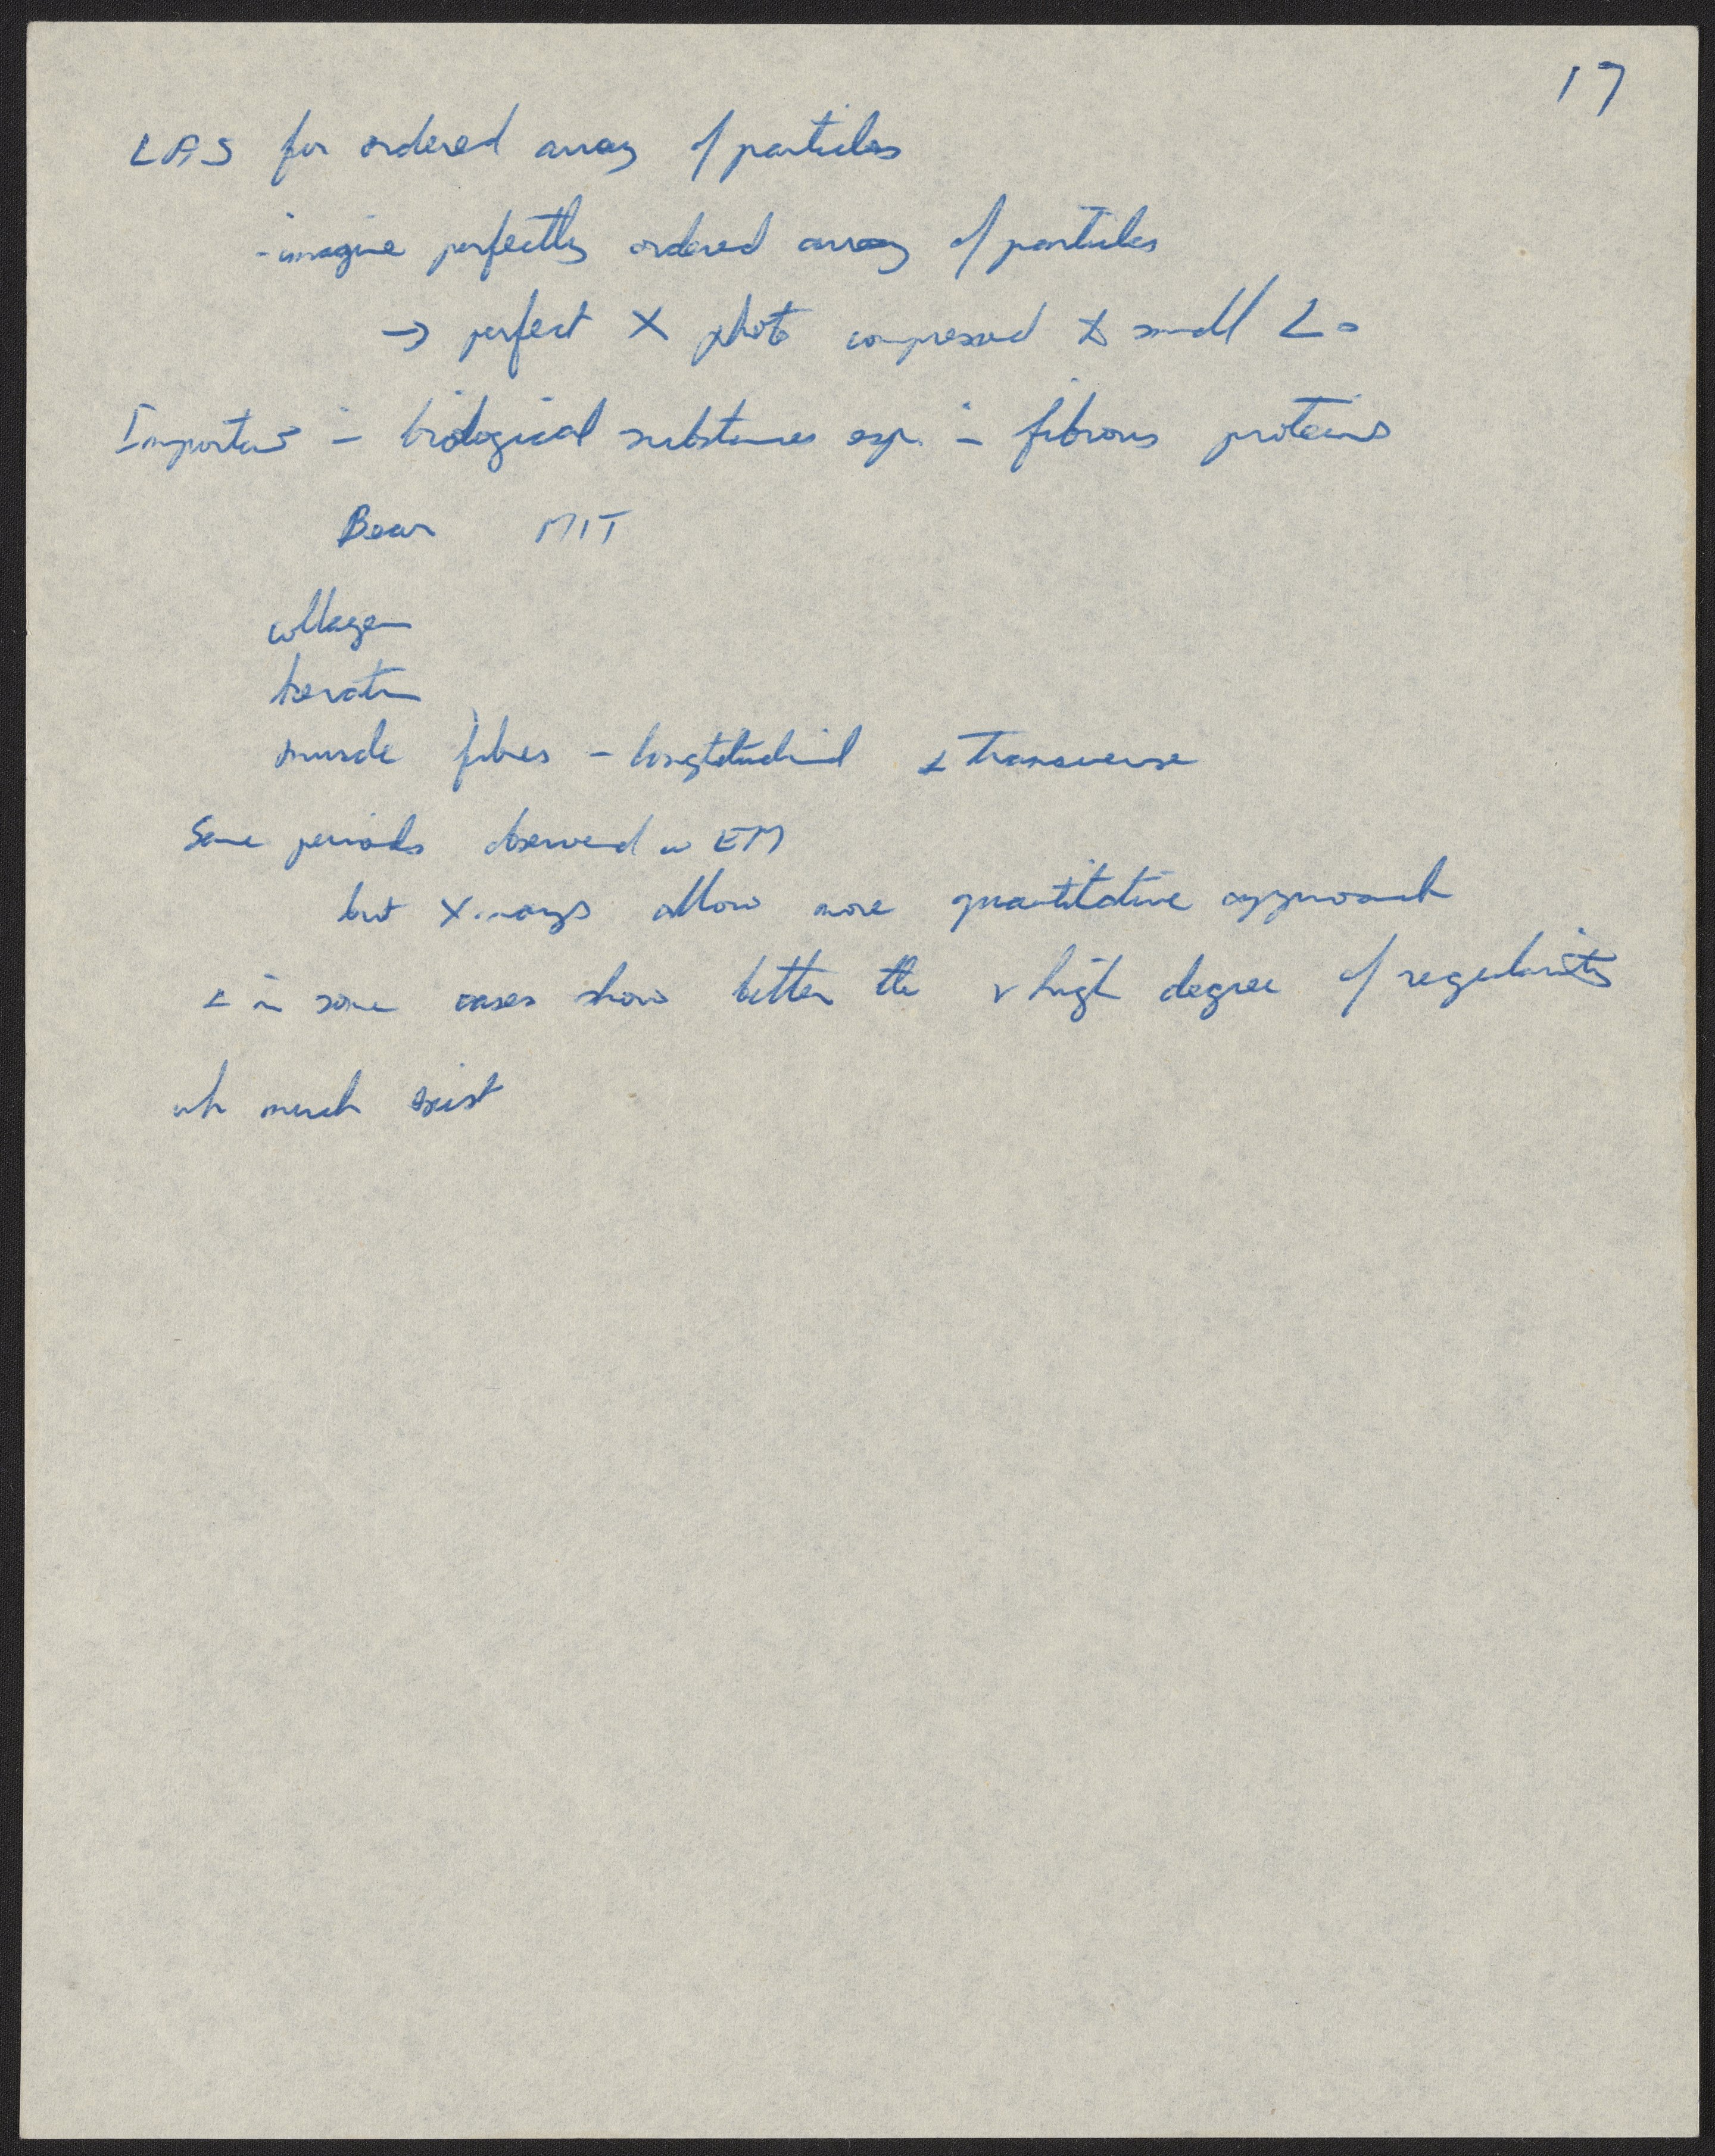 17
LAS for ordered array of particles
- imagine perfectly ordered array of particles
→ perfect X photo compressed to small ∠s
Important in biological substances esp. in fibrous proteins
Bear MIT
collagen
keratin
muscle fibres - longtitudinal & transverse
Same periods observed in EM
but X-rays allow more quantitative approach
& in some cases show better the v high degree of regularity
wh much exist